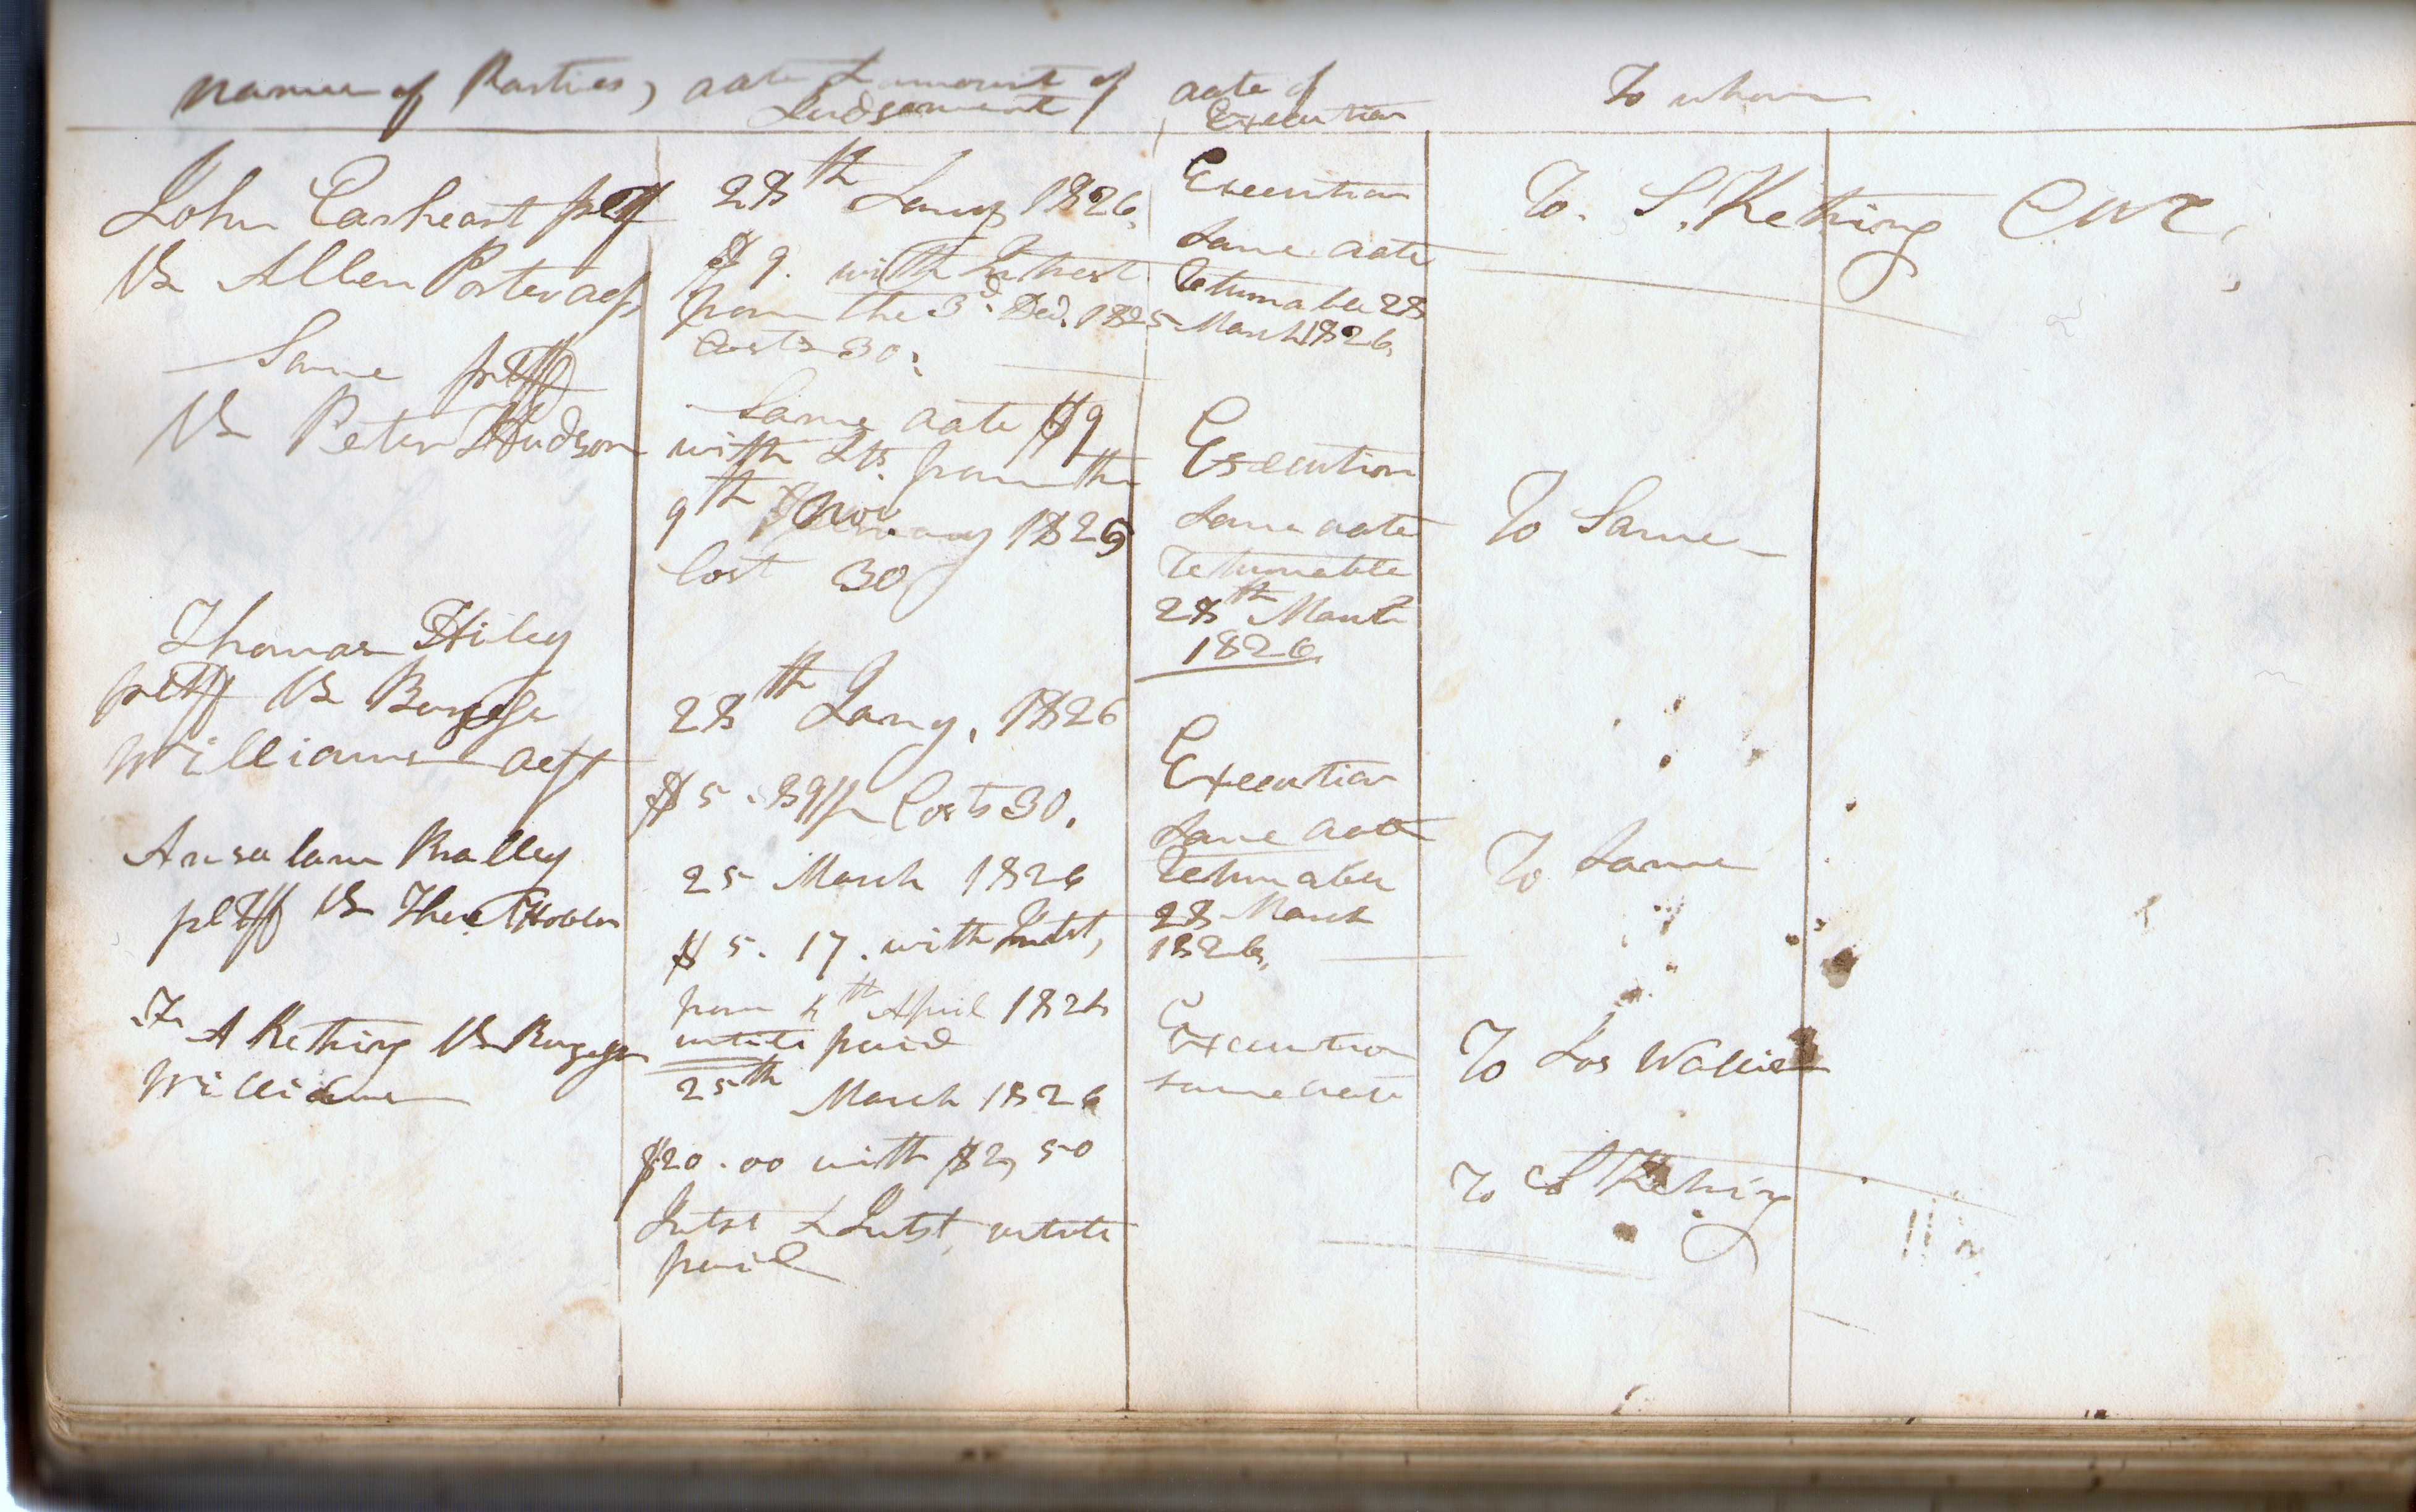 names of Parties, date & amount of Judgement date of Execution To whom
John Earheart pltf
Vs Allen Porter deft
28th Jany 1826.
$9. with Interest
from the 3d. Dec. 1825
Costs 30.
Execution
same date
Returnable 28
March 1826
To. S. Kethiny
Same pltff
Vs Peter Hudson
Same date $9
with Its. from the
9th 1825
Cost 30
Execution
same date
Returnable
28th March
1826
To Same
Thomas Hiley
pltff Vs
Williams deft
28th Jany. 1826
$5.89 Costs 30.
Execution
same date
Returnable
28 March
1826.
To Same
Ansalam Bralley
pltff Vs
25 March 1826
$5.17. with Intst,
from April 1824
untill paid
Execution
same date
To Jos Wallis
A Kethiny Vs
Williams
25th March 1826
$20.00 with $2,50
Intst & Intst, untill
paid
To S Kethiny